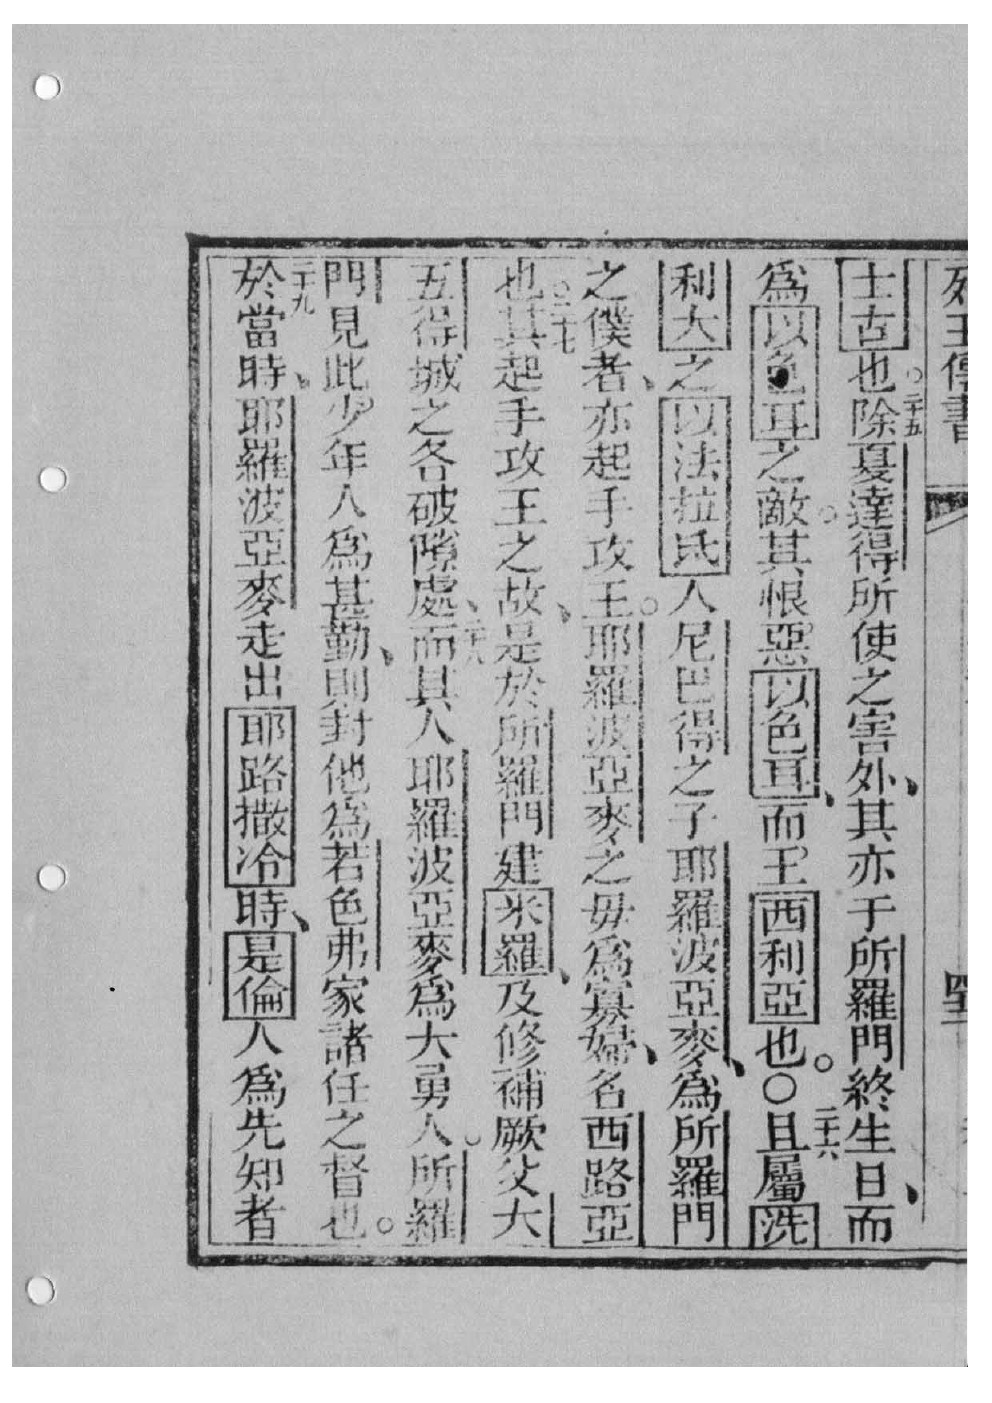 列王傳書
士古也○二十五除夏達得所使之害外、其亦于所羅門終生日、而
為以色耳之敵。其恨惡以色耳、而王西利亞也。○二十六且屬洗
利大之以法拉氏人尼巴得之子耶羅波亞麥、為所羅門
之僕者、亦起手攻王。耶羅波亞麥之毋為寡婦、名西路亞
也○二十七其起手攻王之故、是於所羅門建米羅、及修補厥父大
五得城之各破隙處、二十八而其人耶羅波亞麥為大勇人。所羅
門見此少年人為甚勤、則封他為若色弗家諸任之督也。
二十九於當時、耶羅波亞麥走出耶路撒冷時、是倫人為先知者